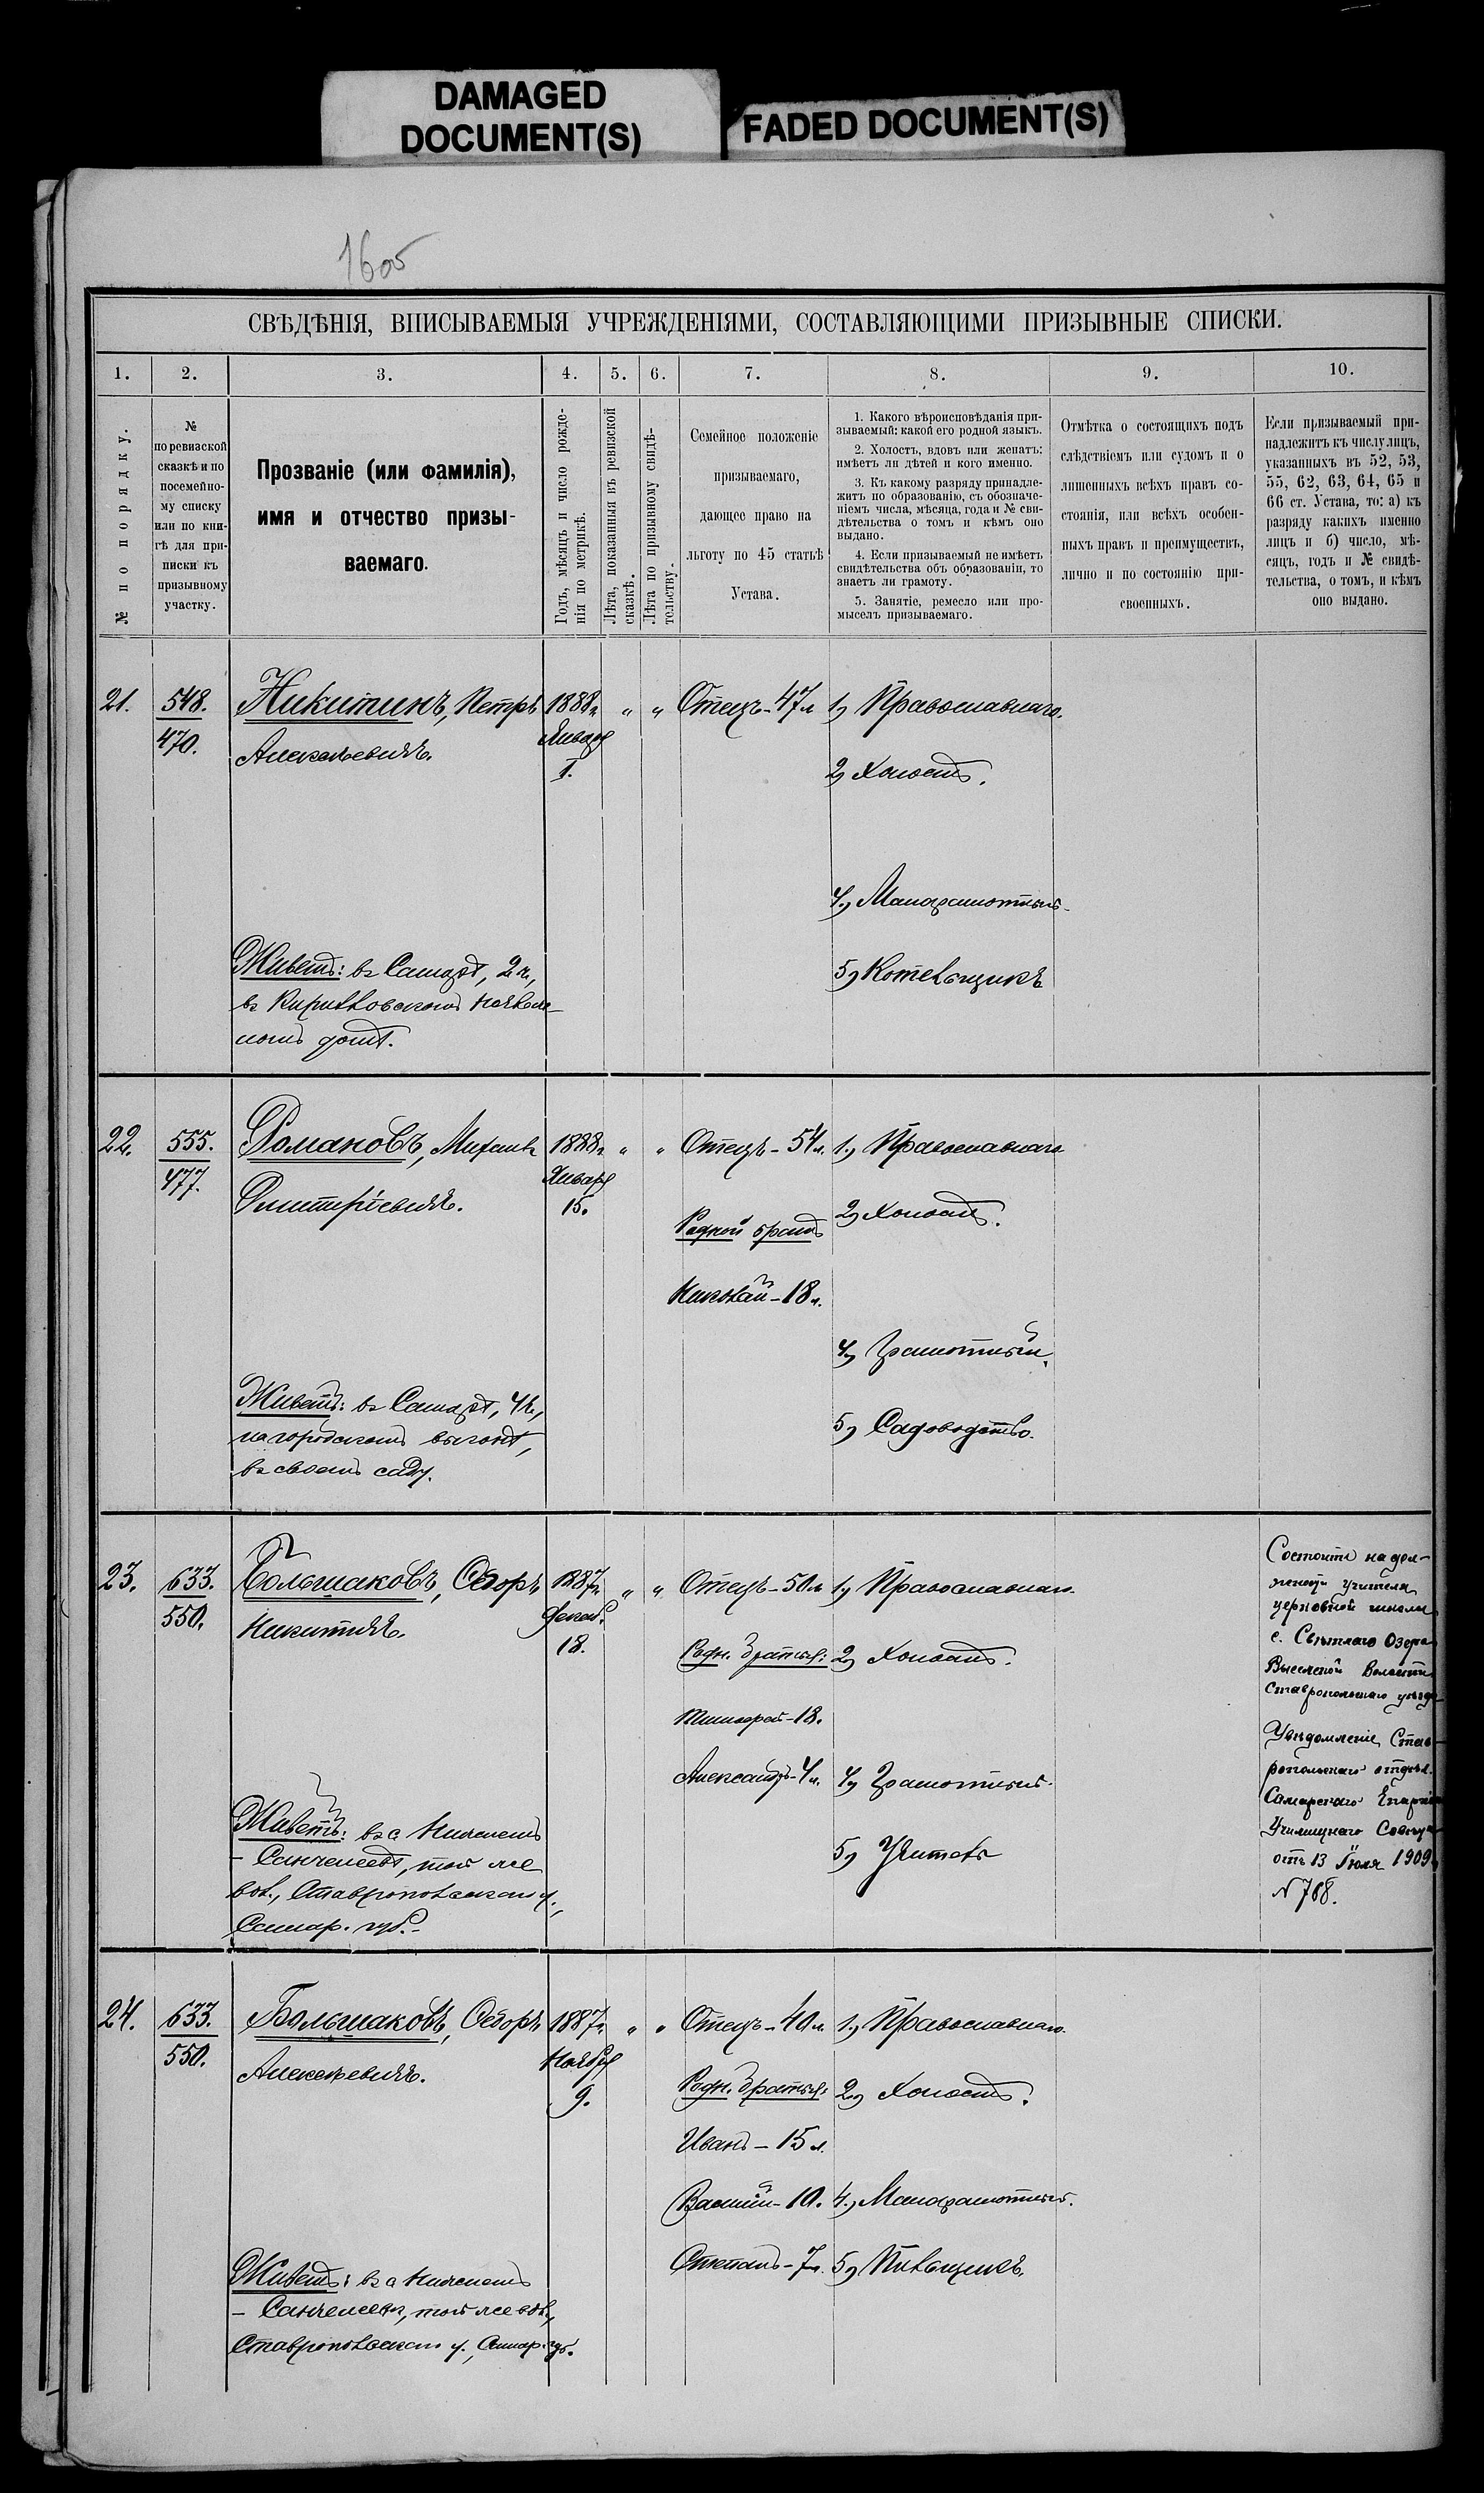 DAMAGED
DOCUMENT(S)
FADED DOCUMENT(S)
СВѢДѢНІЯ, ВПИСЫВАЕМЫЯ УЧРЕЖДЕНІЯМИ, СОСТАВЛЯЮЩИМИ ПРИЗЫВНЫЕ СПИСКИ.
1.
2.
3.
4.
5.
6.
7.
8.
9.
10.
№ по порядку.
№
по ревизской
сказкѣ и по
посемейно-
му списку
или по кни-
гѣ для при-
писки къ
призывному
участку.
Прозваніе (или фамилія),
имя и отчество призы-
ваемаго.
Годъ, мѣсяцъ и число рожде-
нія по метрикѣ.
Лѣта, показанныя въ ревизской
сказкѣ.
Лѣта по призывному свидѣ-
тельству.
Семейное положеніе
призываемаго,
дающее право на
льготу по 45 статьѣ
Устава.
1. Какого вѣроисповѣданія при-
зываемый; какой его родной языкъ.
2. Холостъ, вдовъ или женатъ;
имѣетъ ли дѣтей и кого именно.
3. Къ какому разряду принадле-
житъ по образованію, съ обозначе-
ніемъ числа, мѣсяца, года и № сви-
дѣтельства о томъ и кѣмъ оно
выдано.
4. Если призываемый не имѣетъ
свидѣтельства объ образованіи, то
знаетъ ли грамоту.
5. Занятіе, ремесло или про-
мыселъ призываемаго.
Отмѣтка о состоящихъ подъ
слѣдствіемъ или судомъ и о
лишенныхъ всѣхъ правъ со-
стоянія, или всѣхъ особен-
ныхъ правъ и преимуществъ,
лично и по состоянію при-
своенныхъ.
Если призываемый при-
надлежитъ къ числу лицъ,
указанныхъ въ 52, 53,
55, 62, 63, 64, 65 и
66 ст. Устава, то: а) къ
разряду какихъ именно
лицъ и б) число, мѣ-
сяцъ, годъ и № свидѣ-
тельства, о томъ, и кѣмъ
оно выдано.
21.
548.
470.
Никитинъ, Петръ
Алексѣевичъ.
Живетъ: въ Самарѣ, 2 ч.,
въ Кирилловскомъ ночлеж-
номъ домѣ.
1888 г.
Января
1.
" "
Отецъ - 47 л.
1) Православнаго.
2) Холостъ.
4) Малограмотный
5) Котельщикъ
22.
555.
477.
Романовъ, Михаилъ
Дмитріевичъ.
Живетъ: въ Самарѣ, 4 ч.,
на городскомъ выгонѣ,
въ своемъ саду.
1888 г.
Января
15.
" "
Отецъ - 54 л.
Родной братъ
Николай - 18 л.
1) Православнаго
2) Холостъ.
4) Грамотный.
5) Садоводство.
23.
633.
550.
Большаковъ, Ѳедоръ
Никитичъ.
Живетъ: въ с. Нижнемъ
- Санчелеевѣ, той же
вол., Ставропольскаго у.,
Самар. губ.
1887 г.
Декаб.
18.
" "
Отецъ - 50 л.
Родн. братья:
Тимофей - 18.
Александръ - 4 л.
1) Православнаго.
2) Холостъ.
4) Грамотный.
5) Учитель
Состоитъ на дол-
жности учителя
церковной школы
с. Свѣтлаго Озера
Волости
Ставропольскаго уѣзда
Увѣдомленіе Став-
ропольскаго отдѣл.
Самарскаго Епархі
Училищнаго Совѣта
отъ 13 Іюля 1909 г.
№ 788.
24.
633.
550.
Большаковъ, Ѳедоръ
Алексѣевичъ.
Живетъ: въ с. Нижнемъ
- Санчелеевѣ, той же вол.,
Ставропольскаго у., Самар. губ.
1887 г.
Ноября
9.
" "
Отецъ - 40 л.
Родн. братья:
Иванъ - 15 л.
Василій - 10.
Степанъ - 7 л.
1) Православнаго.
2) Холостъ.
4) Малограмотный.
5) Пильщикъ.